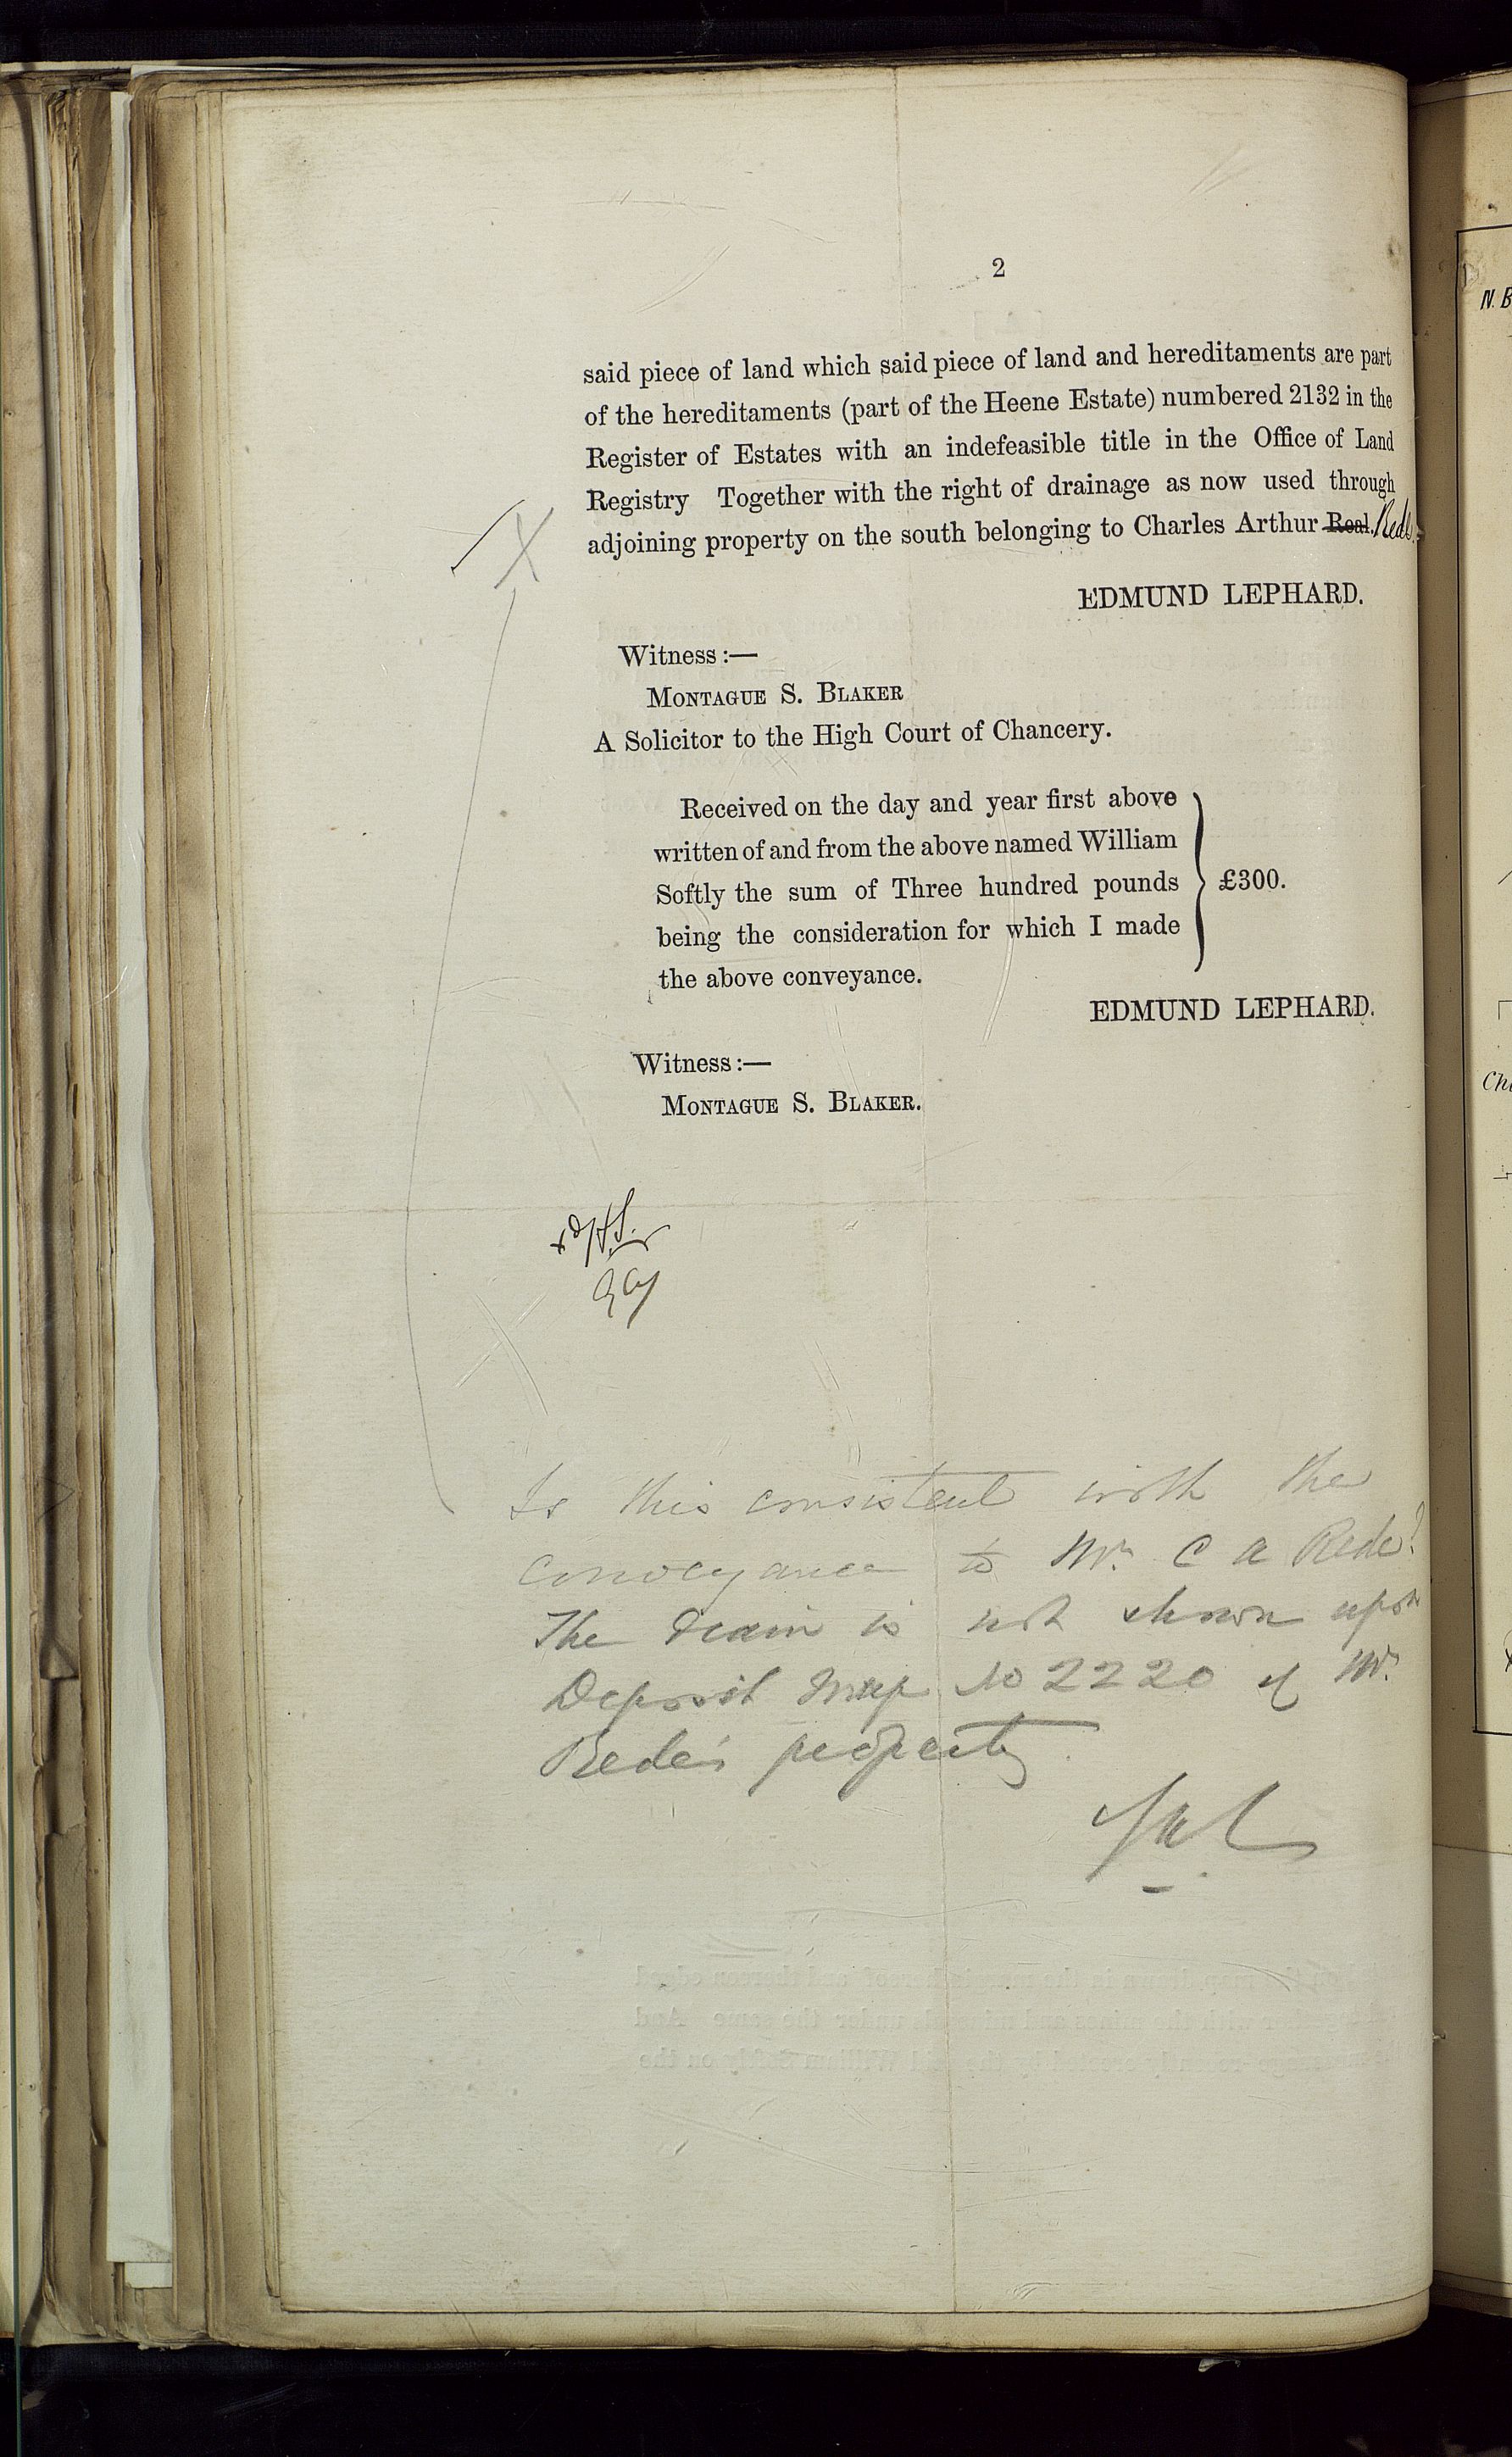 2
said piece of land which said piece of land and hereditaments are part
of the hereditaments (part of the Heene Estate) numbered 2132 in the
Register of Estates with an indefeasible title in the Office of Land
Registry Together with the right of drainage as now used through
adjoining property on the south belonging to Charles Arthur Real. Rede.
EDMUND LEPHARD.
Witness:—
MONTAGUE S. BLAKER
A Solicitor to the High Court of Chancery.
Received on the day and year first above
written of and from the above named William
Softly the sum of Three hundred pounds
being the consideration for which I made
the above conveyance.
£300.
EDMUND LEPHARD.
Witness:—
MONTAGUE S. BLAKER.
Is this consistent with the
conveyance to Mr. C A Rede?
The drain is not shown upon
Deposit Map No 2220 of Mr.
Rede's property.
N. B